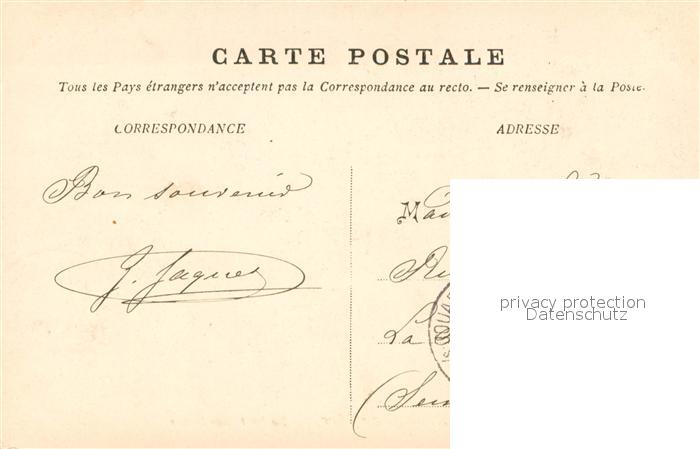 CARTE POSTALE
Tous les Pays étrangers n'acceptent pas la Correspondance au recto. — Se renseigner à la Poste.
CORRESPONDANCE
ADRESSE
Bon souvenir
J. Jaques
La
privacy protection
Datenschutz